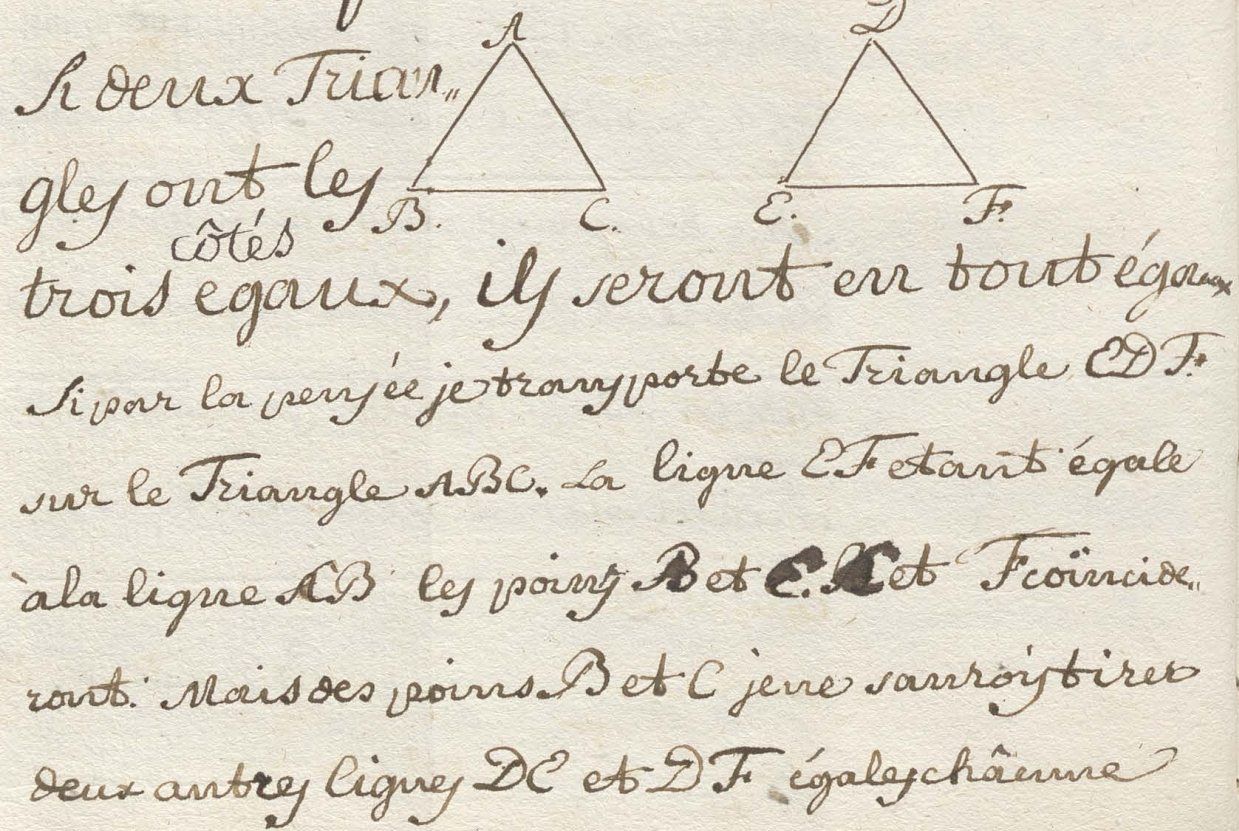 A D
Si deux Trian„
gles ont les
B. C. E. F.
côtés
trois egaux, ils seront en tout égaux
Si par la pensée je transporte le Triangle EDF.
sur le Triangle ABC. La ligne EF etant égale
à la ligne CB les poins B et E. C et F coïncide„
ront. Mais des poins B et C je ne saurois tirer
deux autres lignes DE et DF égales châcune